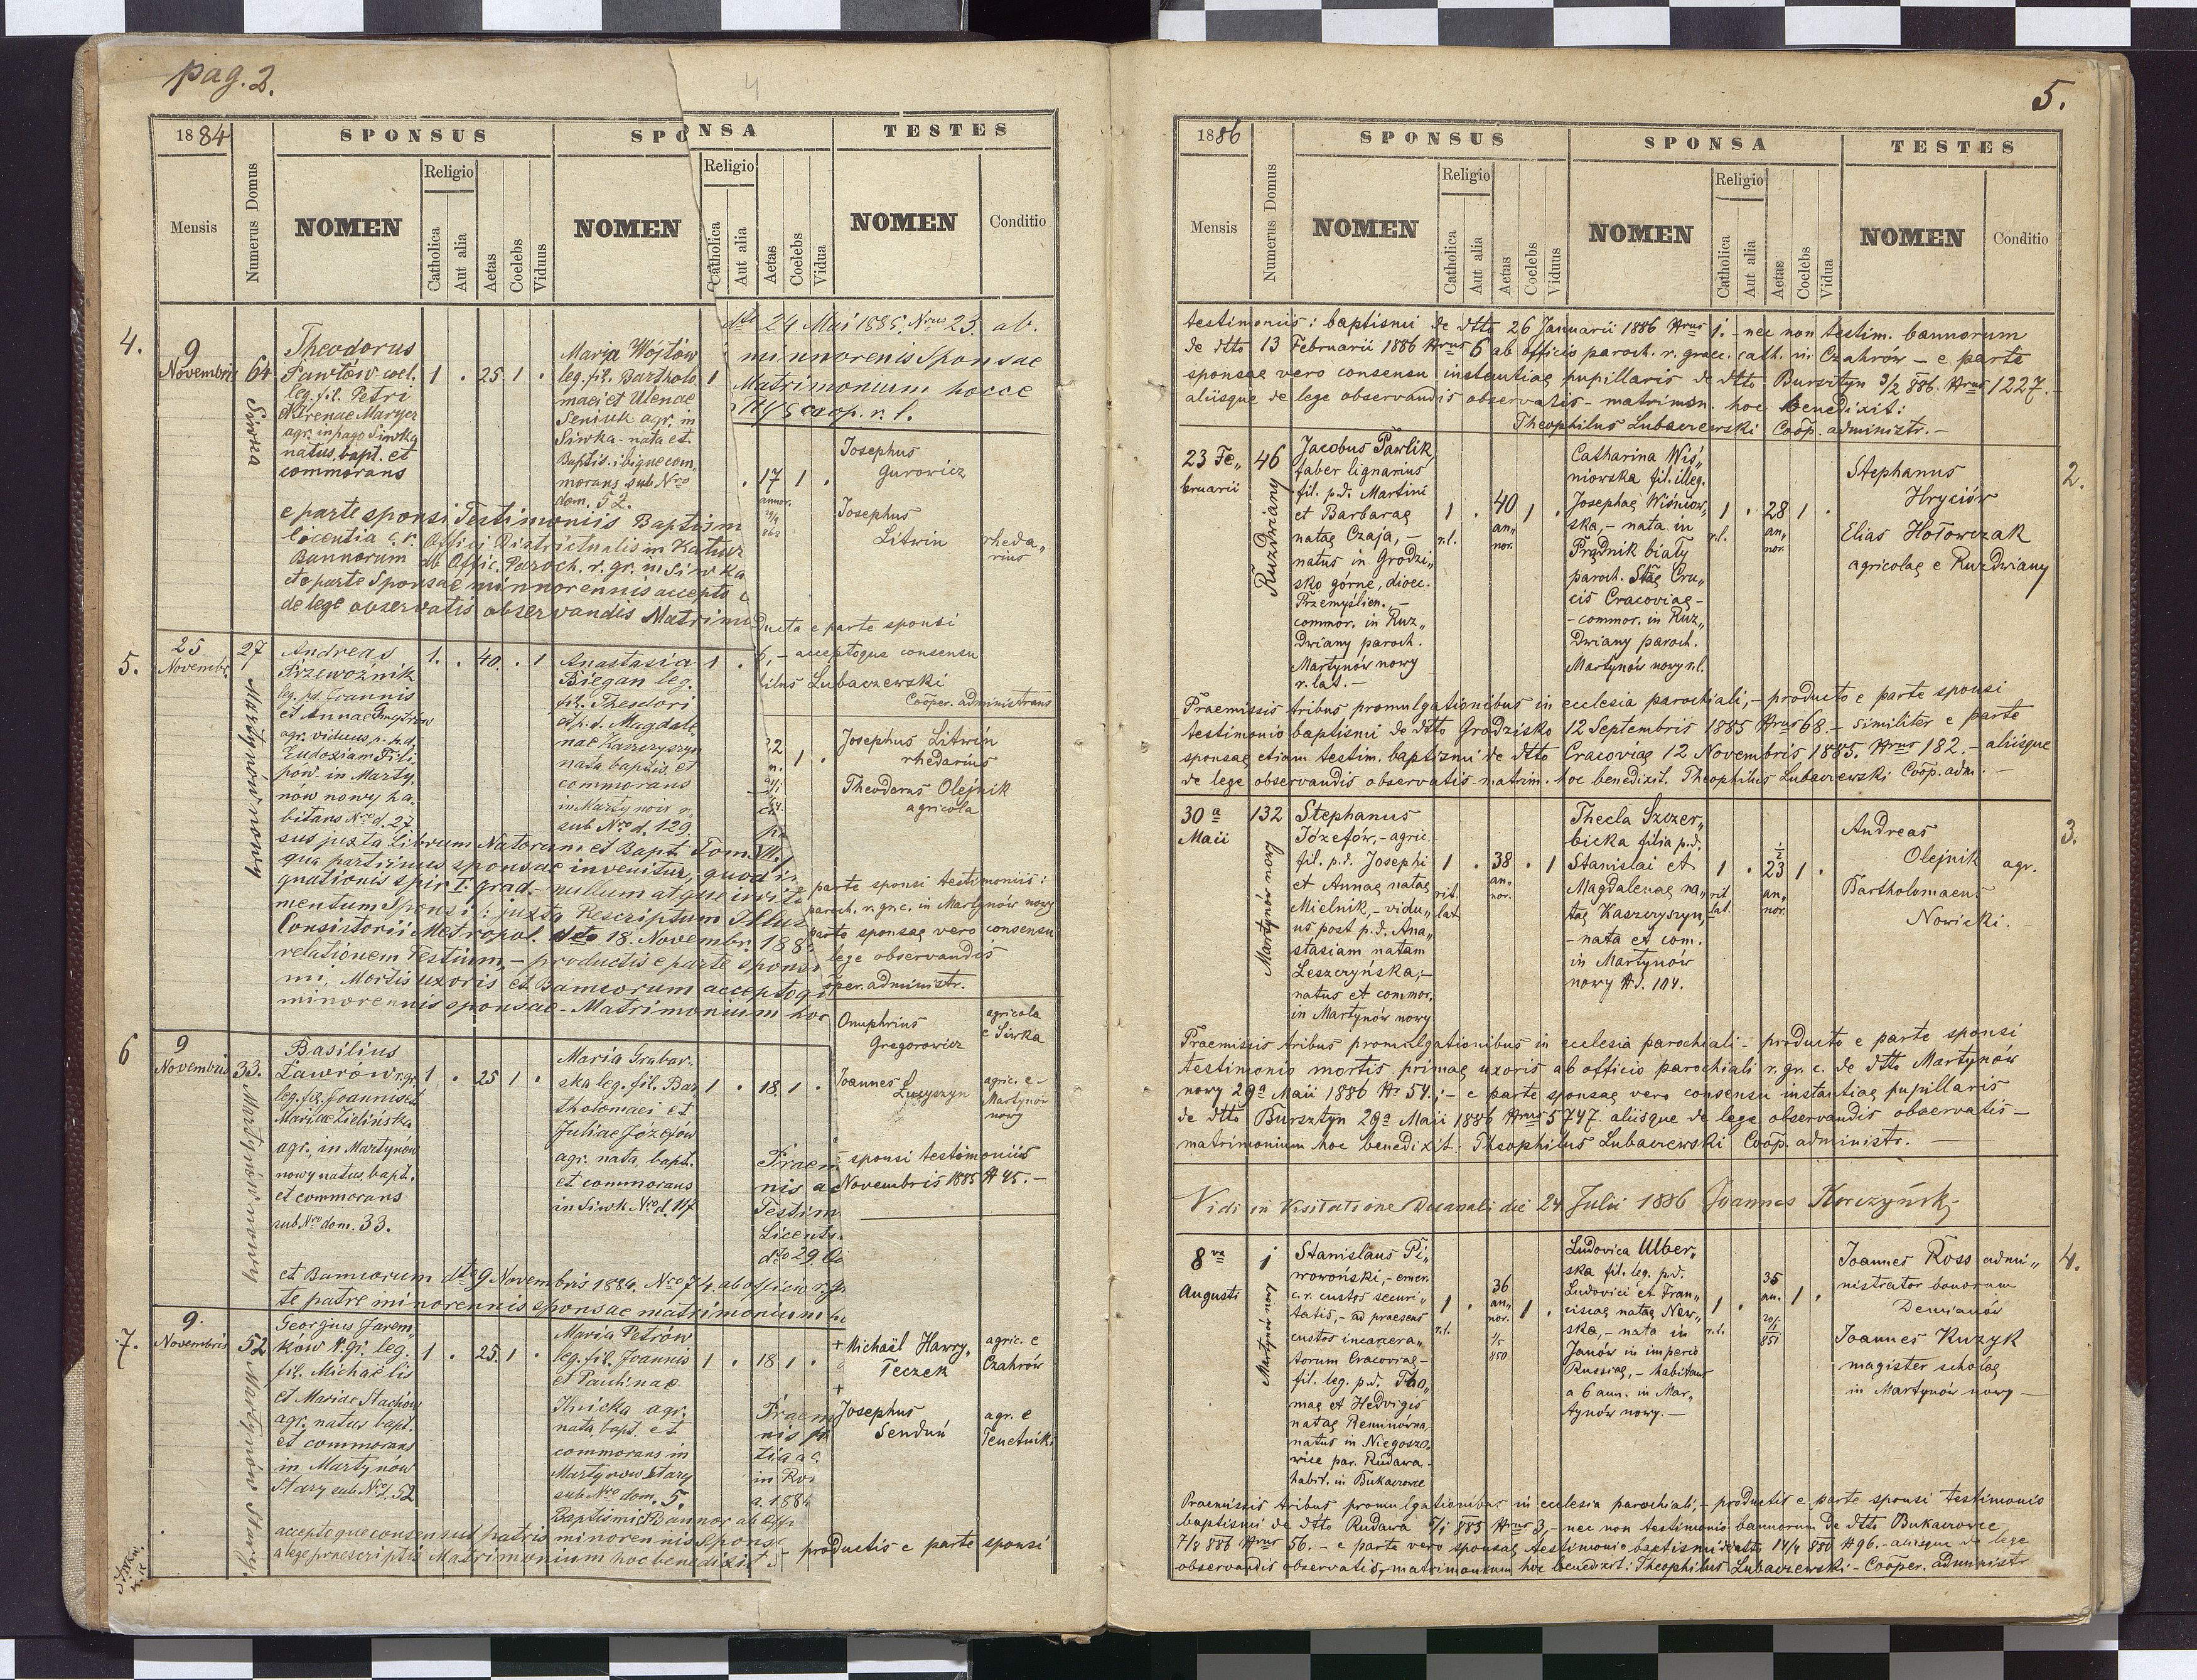 pag. 2.
4
1884
SPONSUS
SPONSA
TESTES
Mensis
Numerus Domus
NOMEN
Religio
Catholica
Aut alia
Aetas
Coelebs
Viduus
NOMEN
Religio
Catholica
Aut alia
Aetas
Coelebs
Vidua
NOMEN
Conditio
4.
9
Novembris
64
Siwka
Theodorus
Pawłów coel.
leg. fil. Petri
et Irenae Maryer
agr. in pago Siwka
natus, bapt. et
commorans
1 . 25 1 .
Maria Wojtów
leg. fil. Bartholo
maei et Ulenae
Seniuk agr. in
Siwka - nata et
Baptis. ibique com,
morans sub Nro
dom. 52.
1
e parte sponsi Testimoniis Baptism
licentia c. r. Officii Districtualis in Kałusz
Bannorum ab Offic. Paroch. r. gr. in Siwka
et e parte Sponsae minnorennis accepto
de lege observatis observandis Matrimo
dto 24 Mai 1885 Nrus 23. ab.
minnorenis Sponsae
Matrimonium hocce
coop. r. l.
. 17 1 .
annor.
Josephus
Gurowicz
Josephus
Litwin
rheda„
rius
ducta e parte sponsi
6, - acceptoque consensu
ilus Lubaczewski
Cooper. administrans
5.
25
Novembr.
27
Martynów nowy
Andreas
Przewoźnik
leg. pd. Joannis
et Annae Dmytrów
agr. viduus p. p.d.
Eudoxiam Fili
pów. in Marty.
nów nowy ha.
bitans Nro d. 27
1. . 40. . 1
Anastasia
Biegan leg.
fil. Theodori
et p.d. Magdale
nae Kaszczyszyn
nata baptis. et
commorans
in Martynów n.
sub Nro d. 129.
1 .
22
n.
1 .
Josephus Litwin
rhedarius
Theodorus Olejnik
agricola
sus juxta Librum Natorum et Bapt. Tom. VII.
qua partinus sponsae invenitur, quod in
gnationis spir I. grad. - nullum atque irrit
mentum Sponsi (: juxta Rescriptum Illus
Consistorii Metropol. dto 18. Novembr. 188
relationem Testium, - productis e parte sponsi
mi, Mortis uxoris et Bannorum acceptoq
minorennis sponsae - Matrimonium hoc
parte sponsi testimoniis:
paroch. r. gr. c. in Martynów nowy
parte sponsae vero consensu
lege observandis
oper. administr.
6
9
Novembris
33.
Martynów nowy
Basilius
Ławrów r. gr.
leg. fil. Joannis et
Mariae Zielińska
agr. in Martynów
nowy natus, bapt.
et commorans
sub Nro dom. 33.
1 . 25 1 .
Maria Grabar.
ska leg. fil. Bar
tholomaei et
Juliae Józefów
agr. nata, bapt.
et commorans
in Siwk Nro d. 117
1 . 18 1 .
Praem
nis ac
Testim
Licent.
dto 29 Oc
Onuphrius
Gregorowicz
agricola
e Siwka
Joannes
Łuczyszyn
agric. e -
Martynów
nowy
sponsi testimoniis
Novembris 1885 N 45. -
et Bannorum dto 9 Novembris 1884. Nro 74. ab officio r. gr
te patre minorennis sponsae matrimonium h
7.
9.
Novembris
52
Martynów Stary.
Georgius Jarem„
ków r. gr. leg.
fil. Michaelis
et Mariae Stachów
agr. natus bapt.
et commorans
in Martynów
Stary sub Nro d. 52
1 . 25. 1 .
Maria Petrów
leg. fil. Joannis
et Paulinae
Ilnicka agr.
nata, bapt. et
commorans in
Martynow Stary
sub Nro dom. 5.
1 . 18 1 .
Praem
nis pr
tia ac
in Ro
a. 1884
Baptismi et Bannor. ab Offi
+ Michaël Hawry„
Teczek
agric. e
Czahrów
+
Josephus
Senduń
agr. e
Tenetniki
accepto que consensus patris minorennis Sponsa
a lege praescriptis Matrimonium hoc benedixit
productis e parte sponsi
5.
1886
SPONSUS
SPONSA
TESTES
Mensis
Numerus Domus
NOMEN
Religio
Catholica
Aut alia
Aetas
Coelebs
Viduus
NOMEN
Religio
Catholica
Aut alia
Aetas
Coelebs
Vidua
NOMEN
Conditio
testimoniis: baptismi de dtto 26 Januarii 1886 Nrus 1. - nec non testim. bannorum
de dtto 13 Februarii 1886 Nrus 6 ab officio paroch. r. graec. cath. in Czahrów - e parte
sponsae vero consensu instantiae pupillaris de dtto Bursztyn 3/2 886. Nrus 1227. -
aliisque de lege observandis observatis - matrimon. hoc benedixit:
Theophilus Lubaczewski Coop. administr. -
23 Fe„
bruarii
46
Ruzdwiany
Jacobus Pawlik,
faber lignarius
fil. p.d. Martini
et Barbarae
natae Czaja, -
natus in Grodzi„
sko górne, dioec.
Przemyślien. -
commor. in Ruz„
dwiany paroch.
Martynów nowy
r. lat. -
1
r.l.
. 40
an„
nor.
1 .
Catharina Wiś„
niowska fil. illeg.
Josephae Wiśniow„
ska, - nata in
Prądnik biały
paroch. Stae Cru„
cis Cracoviae -
- commor. in Ruz„
dwiany paroch.
Martynów nowy r.l.
1
r.l.
. 28
an„
nor.
1 .
Stephanus
Hryciów
Elias Hołowczak
agricolae e Ruzdwiany
2.
Praemissis tribus promulgationibus in ecclesia parochiali, - producto e parte sponsi
testimonio baptismi de dtto Grodzisko 12 Septembris 1885 Nrus 68. - similiter e parte
sponsae etiam testim. baptismi de dtto Cracoviae 12 Novembris 1885. Nrus 182. - aliisque
de lege observandis observatis - matrim. hoc benedixit. Theophilus Lubaczewski Coop. adm. -
30 a
Maii
132
Martynów nowy
Stephanus
Józefów, - agric.
fil. p.d. Josephi
et Annae natae
Mielnik, - vidu„
us post p.d. Ana„
stasiam natam
Leszczyńska, -
natus et commor.
in Martynów nowy
1
rit.
lat.
. 38
an„
nor.
. 1
Thecla Szczer„
bicka filia p.d.
Stanislai et
Magdalenae na„
tae Kaszczyszyn,
- nata et com.
in Martynów
nowy N. 104.
1
rit.
lat.
. 23 1/2
an„
nor.
1 .
Andreas
Olejnik agr.
Bartholomaeus
Nowicki.
3.
Praemissis tribus promulgationibus in ecclesia parochiali - producto e parte sponsi
testimonio mortis primae uxoris ab officio parochiali r. gr. c. de dtto Martynów
nowy 29a Maii 1886 N. 54.; - e parte sponsae vero consensu instantiae pupillaris
de dtto Bursztyn 29a Maii 1886 Nrus 5747. aliisque de lege observandis observatis -
matrimonium hoc benedixit: Theophilus Lubaczewski Coop. administr. -
Vidi in Visitatione Decanali die 24 Julii 1886 Joannes Korczyńsk
8va
Augusti
1
Martynów nowy
Stanislaus Pi„
wowoński, - emer.
c.r. custos securi„
tatis, - ad praesens
custos incarcera„
torum Cracoviae -
fil. leg. p.d. Tho„
mae et Hedvigis
natae Reminówna
natus in Niegoszo„
wice par. Rudawa -
habit. in Bukaczowce
1
r.l.
. 36
an„
nor.
1/5
850
1 .
Ludovica Ulber„
ska fil. leg. p.d.
Ludovici et Fran„
ciscae natae New„
ska, - nata in
Janów in imperio
Russiae, - habitans
a 6 ann. in Mar„
tynów nowy. -
1
r.l.
. 35
an.
851
1 .
Joannes Ross admi„
nistrator bonorum
Demianów
Joannes Kuzyk
magister scholae
in Martynów nowy -
4.
Praemissis tribus promulgationibus in ecclesia parochiali, - productis e parte sponsi testimonio
baptismi de dtto Rudawa 5/1 885 Nrus 3, - nec non testimonio bannorum de dtto Bukaczowce
7/8 886 Nrus 56. - e parte vero sponsae testimonio baptismi de dtto 14/4 880 N 96. - aliisque de lege
observandis observatis, matrimonium hoc benedixit: Theophilus Lubaczewski - Cooper. administr